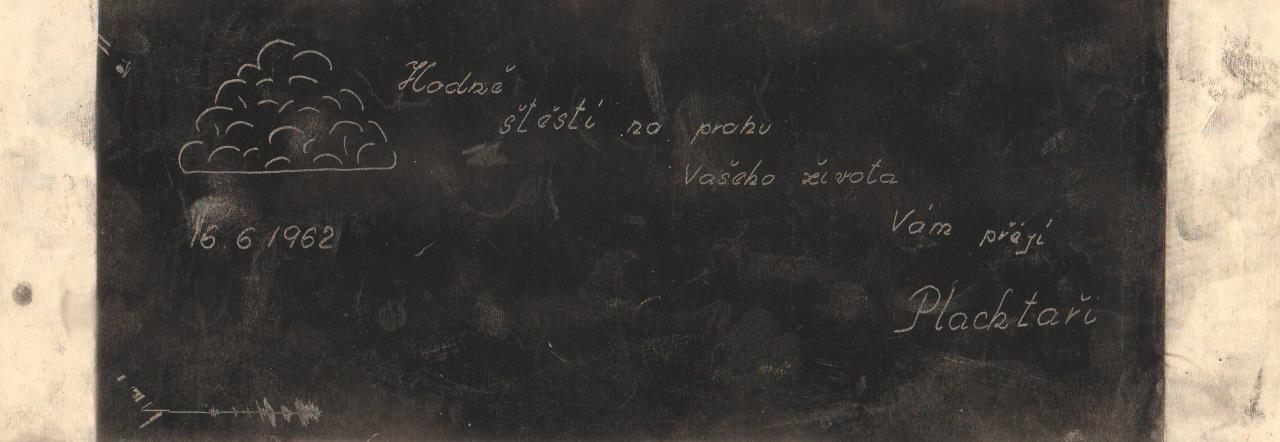 Hodně
štěstí na prahu
Vašeho života
Vám přejí
Plachtaři
16 6 1962